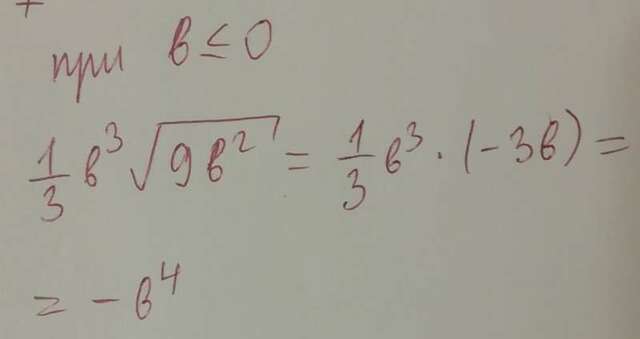 при в ≤ 0
1/3 в³ √(9в²) = 1/3 в³ · (-3в) =
= -в⁴